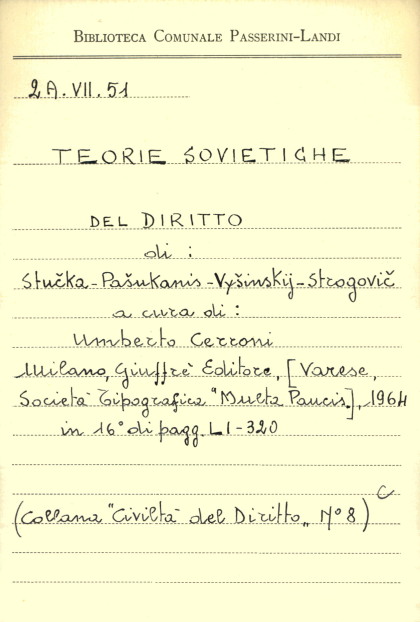 BIBLIOTECA COMUNALE PASSERINI-LANDI
2A.VII.51
TEORIE SOVIETICHE
DEL DIRITTO
di :
Stučka-Pašukanis-Vyšinskij-Strogovič
a cura di :
Umberto Cerroni
Milano, Giuffrè Editore, [Varese,
Società Tipografica "Multa Paucis„], 1964
in 16° di pagg. LI-320
C
(Collana "Civiltà del Diritto„ N° 8)